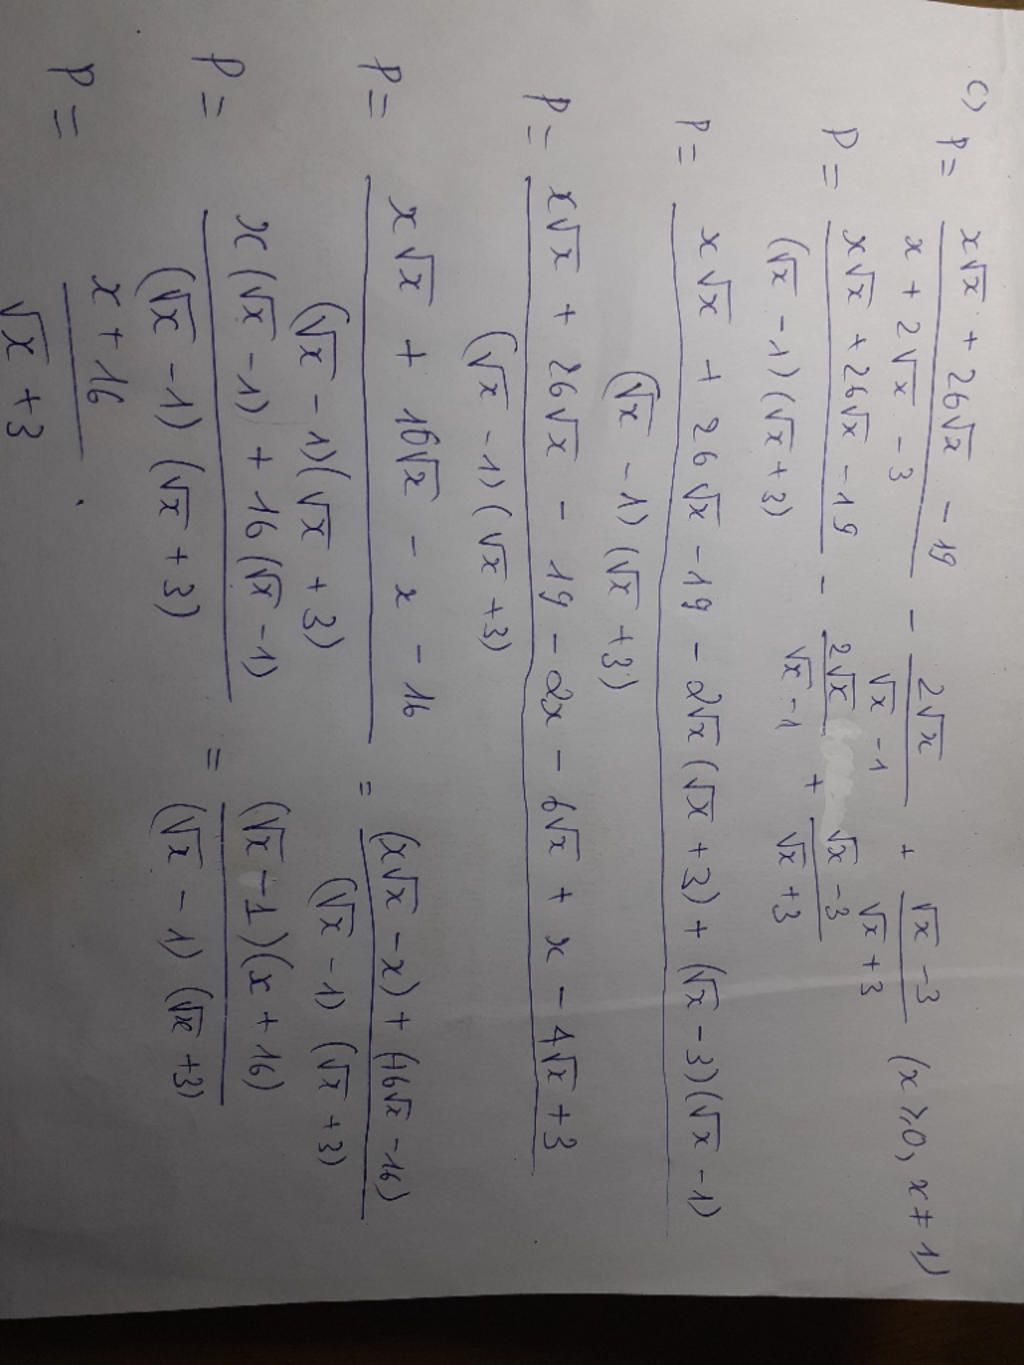 c) P = (x√x + 26√x - 19)/(x + 2√x - 3) - 2√x/(√x - 1) + (√x - 3)/(√x + 3) (x ≥ 0, x ≠ 1)
P = (x√x + 26√x - 19)/((√x - 1)(√x + 3)) - 2√x/(√x - 1) + (√x - 3)/(√x + 3)
P = (x√x + 26√x - 19 - 2√x(√x + 3) + (√x - 3)(√x - 1))/((√x - 1)(√x + 3))
P = (x√x + 26√x - 19 - 2x - 6√x + x - 4√x + 3)/((√x - 1)(√x + 3))
P = (x√x + 16√x - x - 16)/((√x - 1)(√x + 3)) = ((x√x - x) + (16√x - 16))/((√x - 1)(√x + 3))
P = (x(√x - 1) + 16(√x - 1))/((√x - 1)(√x + 3)) = ((√x - 1)(x + 16))/((√x - 1)(√x + 3))
P = (x + 16)/(√x + 3) .